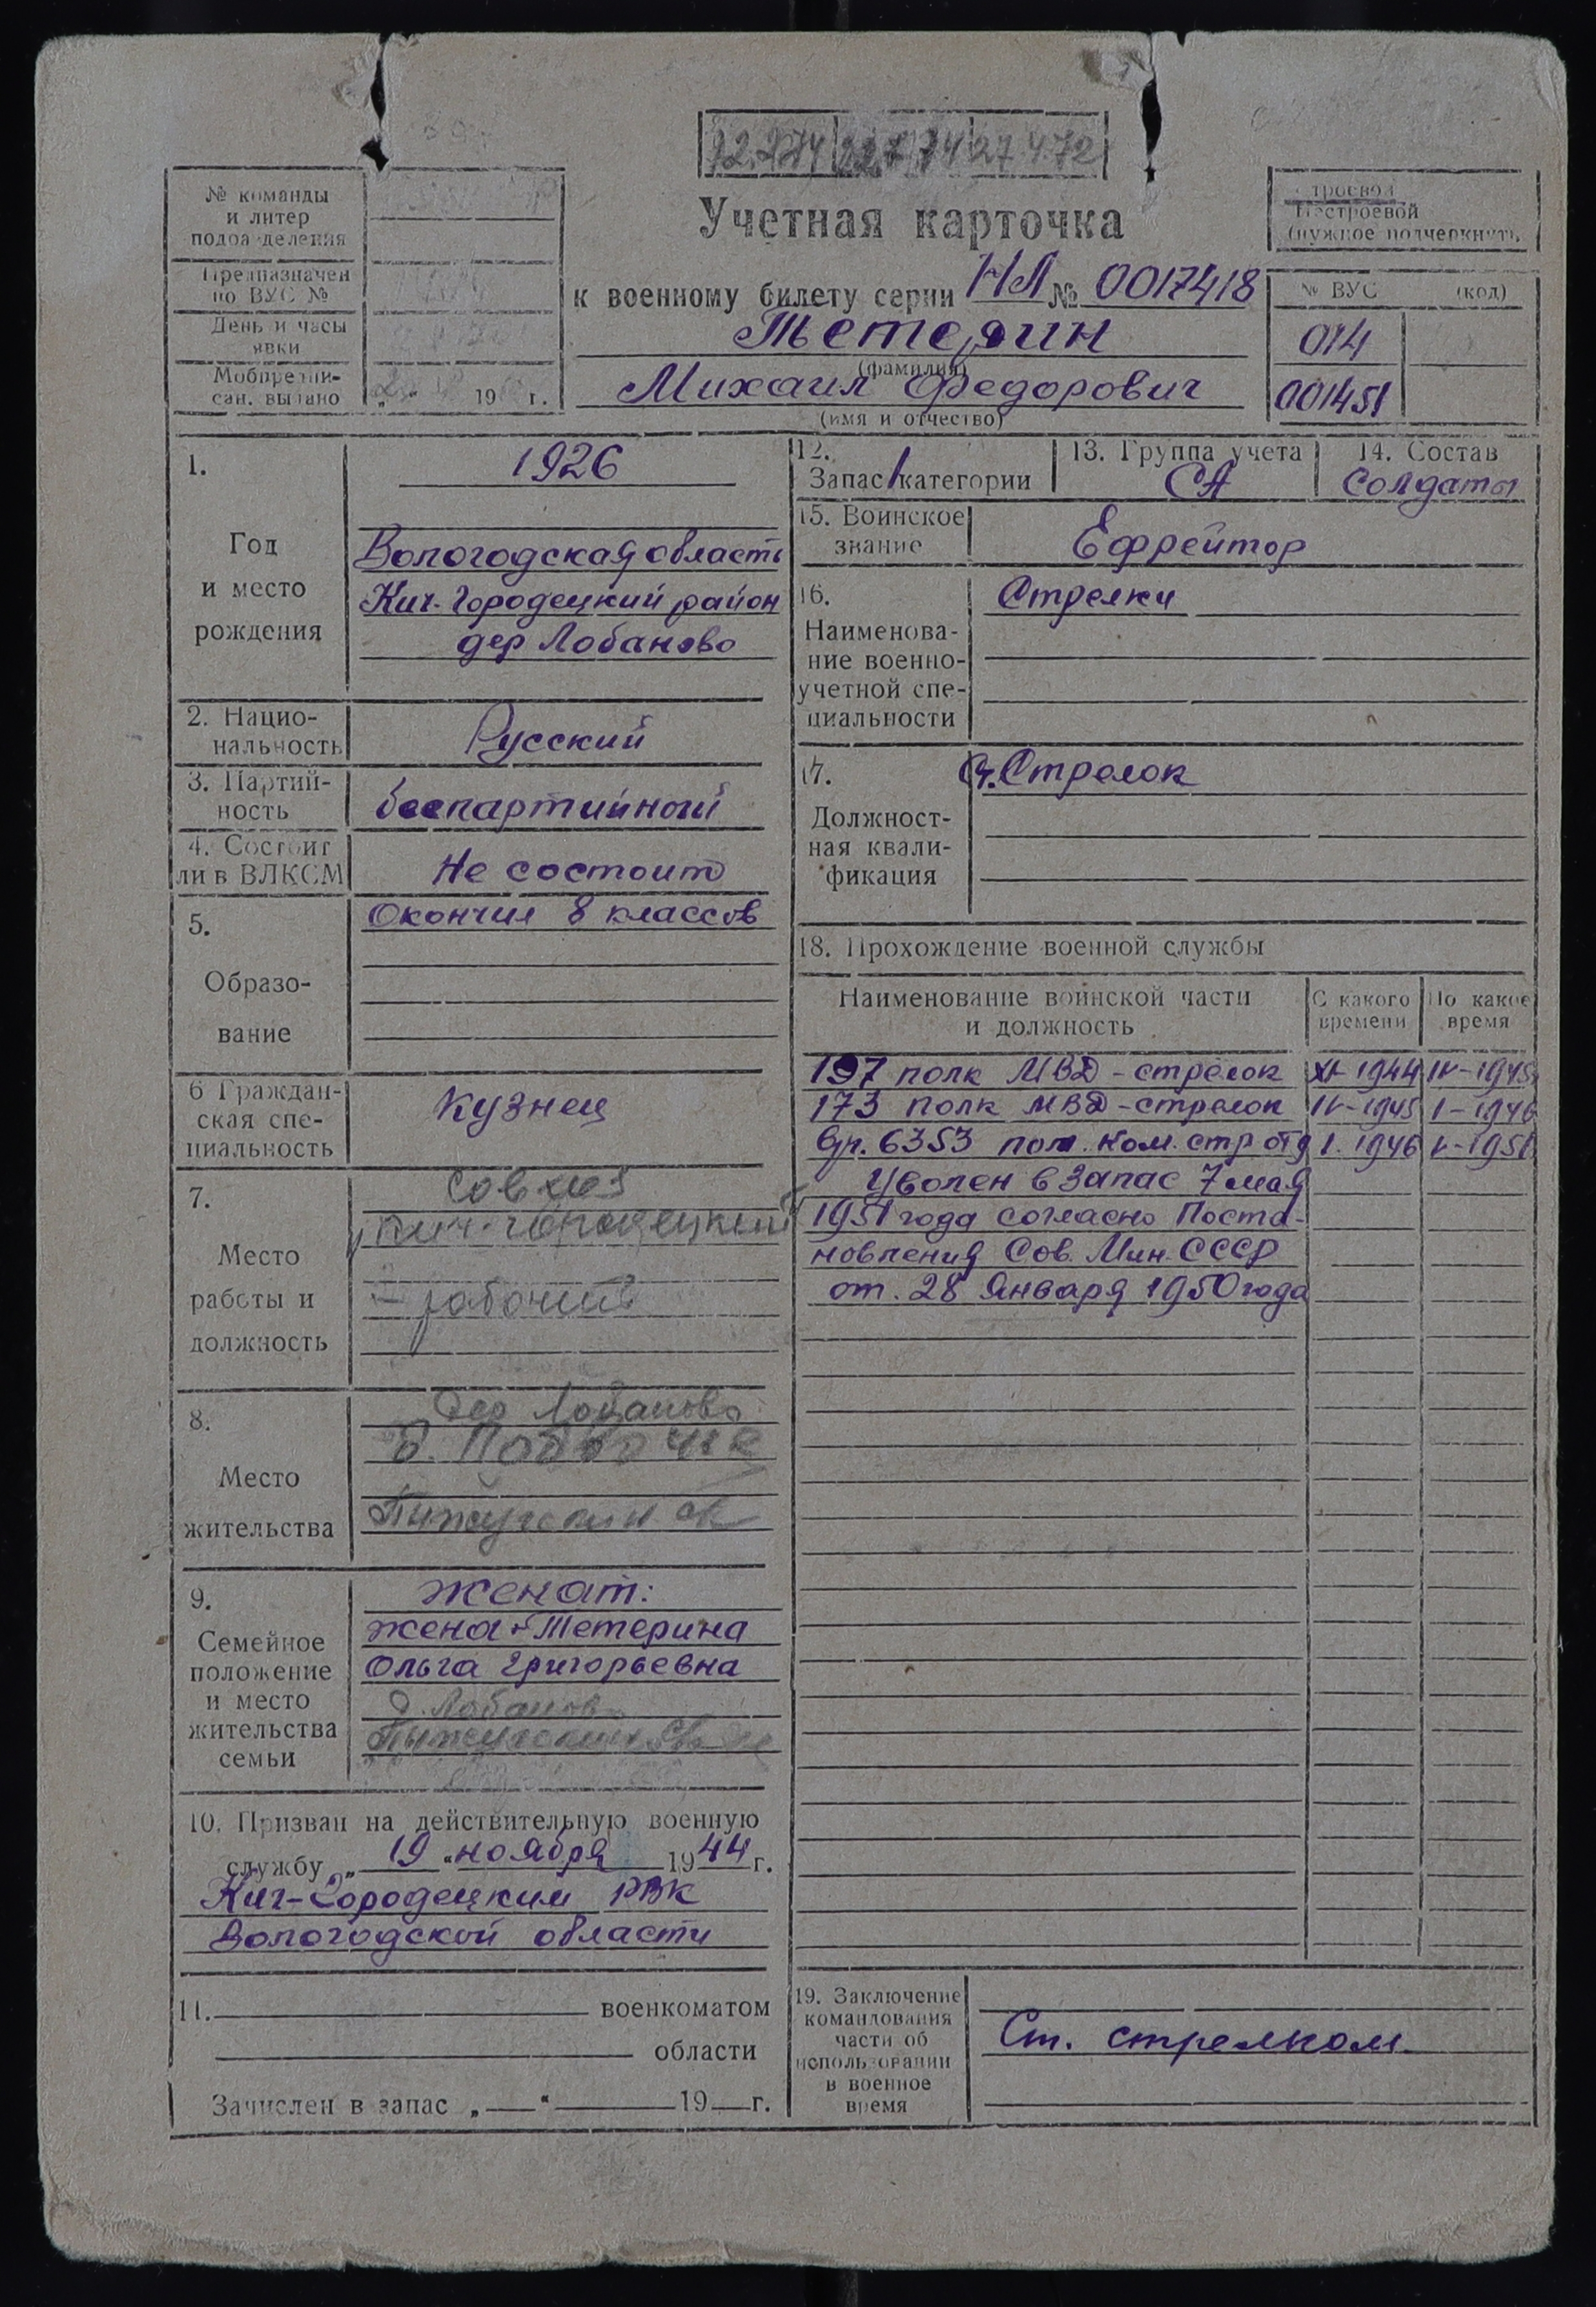 Учетная карточка
к военному билету серии НЛ № 0017418
Тетерин
(фамилия)
Михаил Федорович
(имя и отчество)
№ команды
и литер
подразделения
Предназначен
по ВУС №
День и часы
явки
Мобпредпи-
сан. выдано „ “ 19 г.
Строевой
Нестроевой
(нужное подчеркнуть
№ ВУС (код)
014
001451
1.
Год
и место
рождения
1926
Вологодская область
Кич-Городецкий район
дер Лобаново
2. Нацио-
нальность
Русский
3. Партий-
ность
беспартийный
4. Состоит
ли в ВЛКСМ
Не состоит
5.
Образо-
вание
Окончил 8 классов
6 Граждан-
ская спе-
циальность
Кузнец
7.
Место
работы и
должность
Совхоз
Кич-Городецкий
- рабочий
8.
Место
жительства
Дер Лобаново
9.
Семейное
положение
и место
жительства
семьи
Женат:
жена - Тетерина
Ольга Григорьевна
д. Лобаново
10. Призван на действительную военную
службу „ 19 “ ноября 1944 г.
Кич-Городецким РВК
Вологодской области
11. военкоматом
области
Зачислен в запас „ “ 19 г.
12.
Запас 1 категории
13. Группа учета
СА
14. Состав
Солдаты
15. Воинское
звание
Ефрейтор
16.
Наименова-
ние военно-
учетной спе-
циальности
Стрелки
17.
Должност-
ная квали-
фикация
Ст. Стрелок
18. Прохождение военной службы
Наименование воинской части
и должность
С какого
времени
По какое
время
197 полк МВД - стрелок XI-1944 IV-1945
173 полк МВД - стрелок IV-1945 I-1946
6353 пом. ком. стр отд I. 1946 V-1951
Уволен в запас 7 мая
1951 года согласно Поста-
новления Сов. Мин. СССР
от. 28 Января 1950 года
19. Заключение
командования
части об
использовании
в военное
время
Ст. стрелком.